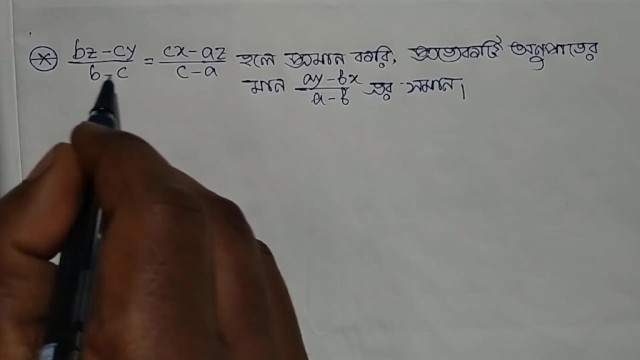 ⊛ (bz-cy)/(b-c) = (cx-az)/(c-a) হলে প্রমান করি, প্রত্যেকটি অনুপাতের
মান (ay-bx)/(a-b) এর সমান।